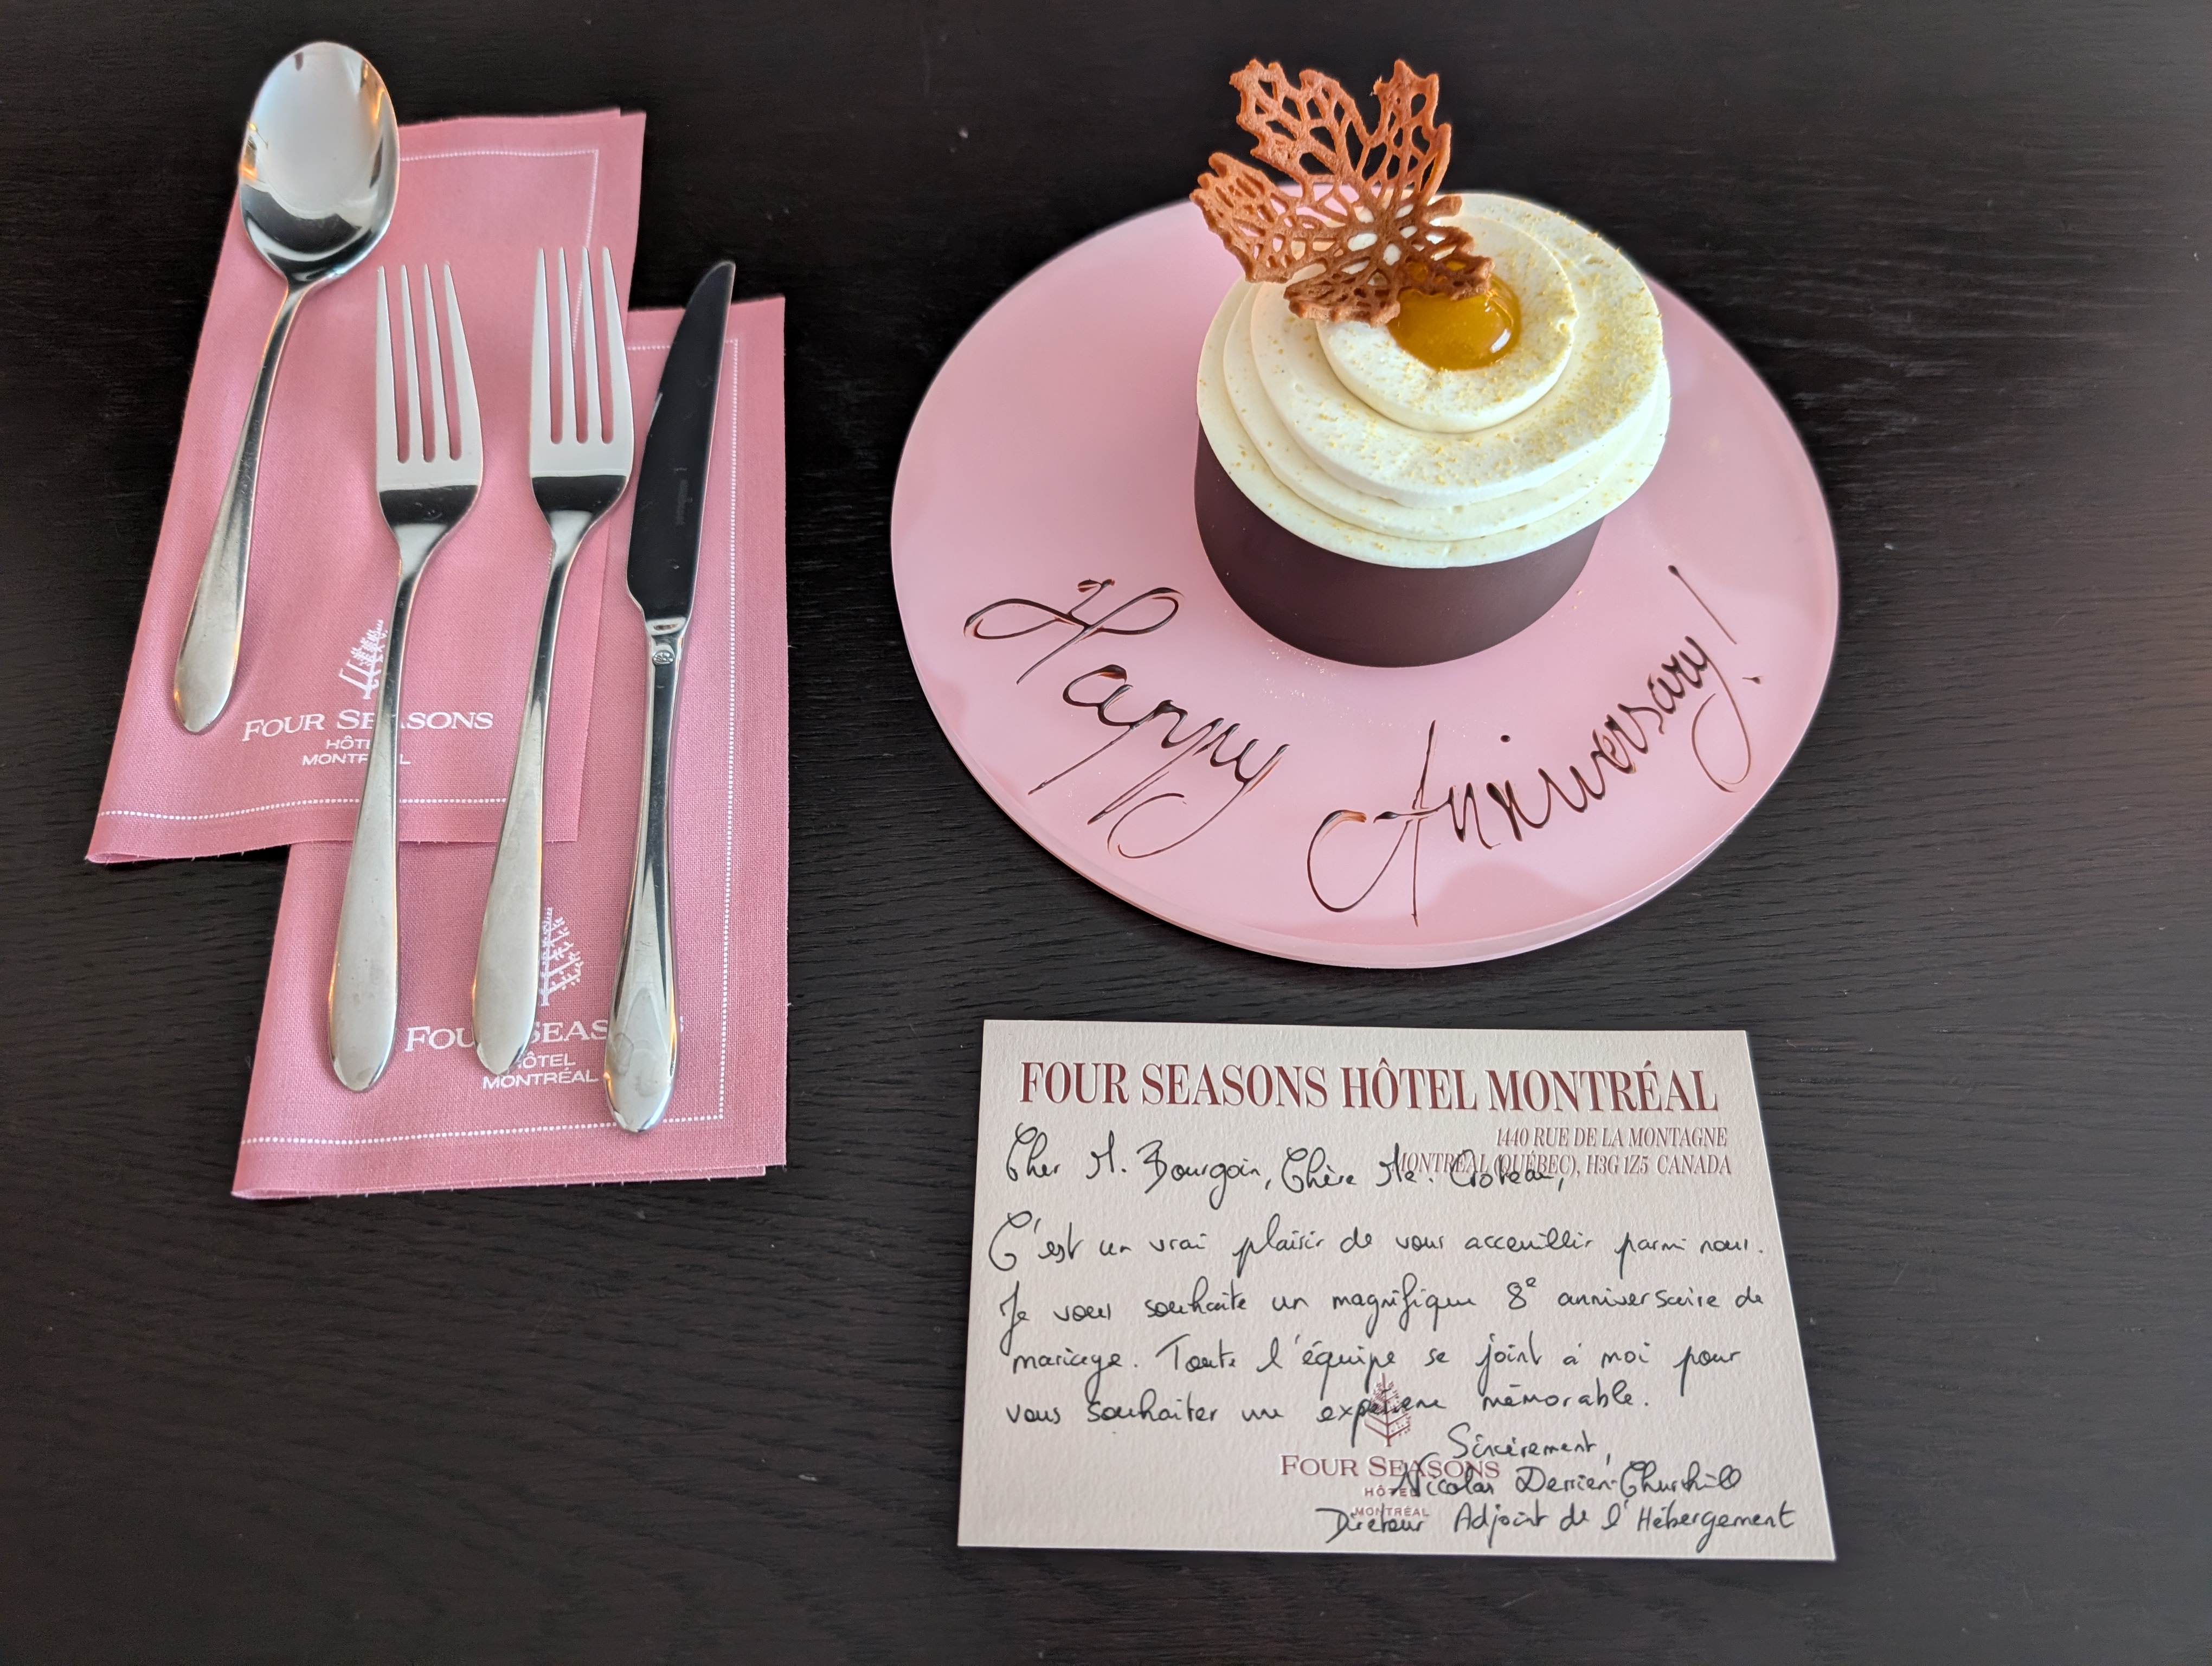 FOUR SEASONS
HÔTEL
MONTRÉAL
FOUR SEASONS
HÔTEL
MONTRÉAL
Happy Anniversary!
FOUR SEASONS HÔTEL MONTRÉAL
1440 RUE DE LA MONTAGNE
MONTRÉAL (QUÉBEC), H3G 1Z5 CANADA
Cher M. Bourgoin, Chère Me. Croteau,
C'est un vrai plaisir de vous acceuillir parmi nous.
Je vous souhaite un magnifique 8e anniversaire de
mariage. Toute l'équipe se joint à moi pour
vous souhaiter une expérience mémorable.
Sincèrement,
Nicolas Derrien-Churchill
Directeur Adjoint de l'Hébergement
FOUR SEASONS
HÔTEL
MONTRÉAL